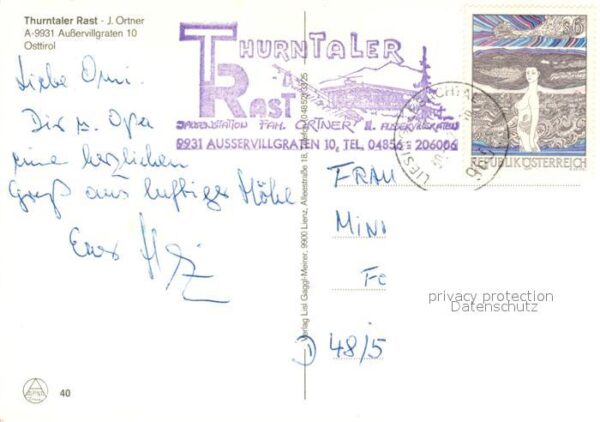 Thurntaler Rast - J. Ortner
A-9931 Außervillgraten 10
Osttirol
THURNTALER
RAST
JAUSENSTATION FAM. ORTNER II. AUSSERVILLGRATEN
9931 AUSSERVILLGRATEN 10, TEL. 04856 206006
S6
REPUBLIK ÖSTERREICH
Liebe Omi.
Dir u. Opa
eine herzlichen
Gruß aus luftiger Höhe
Euer
Verlag Lisl Gaggl-Meirer, 9900 Lienz, Alleestraße 18,
FRAU
MINI
Fe
48/5
privacy protection
Datenschutz
40